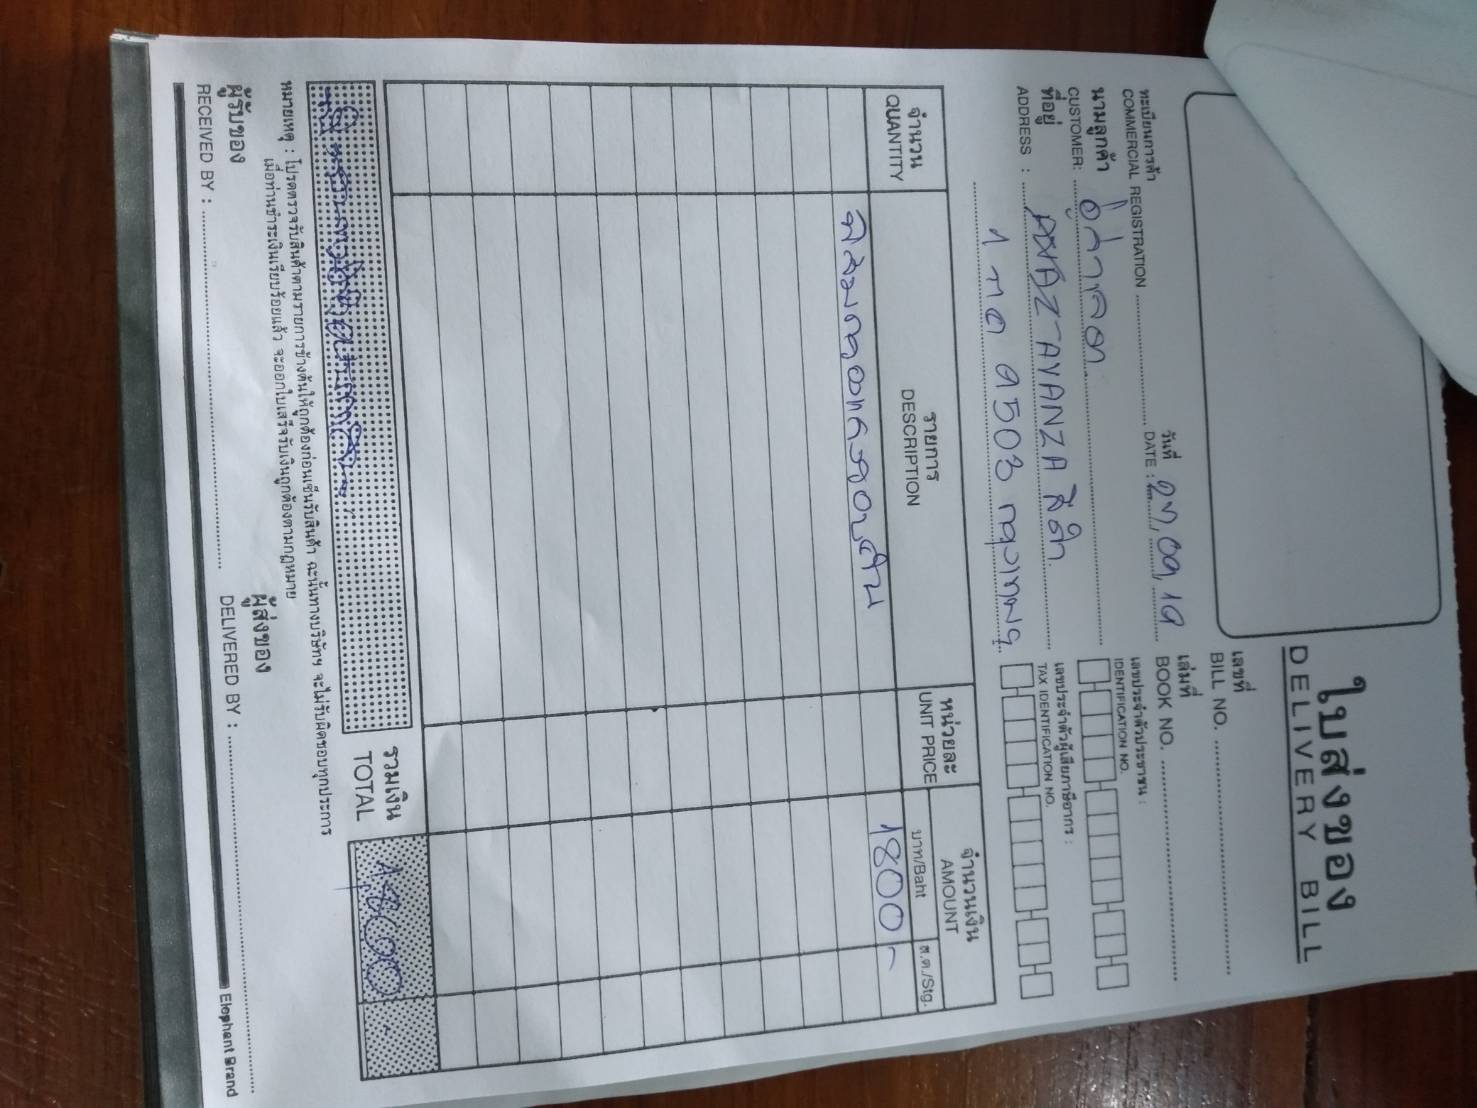 ใบส่งของ
DELIVERY BILL
เลขที่
BILL NO.
เล่มที่
BOOK NO.
ทะเบียนการค้า
COMMERCIAL REGISTRATION
วันที่
DATE :
เลขประจำตัวประชาชน :
IDENTIFICATION NO.
นามลูกค้า
CUSTOMER:
ที่อยู่
ADDRESS :
AYANZA สีดำ
1 กด 9503 กรุงเทพฯ
เลขประจำตัวผู้เสียภาษีอากร :
TAX IDENTIFICATION NO.
จำนวน
QUANTITY
รายการ
DESCRIPTION
หน่วยละ
UNIT PRICE
จำนวนเงิน
AMOUNT
บาท/Baht
ส.ต./Stg.
1800 -
รวมเงิน
TOTAL
1,800 -
หมายเหตุ : โปรดตรวจรับสินค้าตามรายการข้างต้นให้ถูกต้องก่อนเซ็นรับสินค้า ฉะนั้นทางบริษัทฯ จะไม่รับผิดชอบทุกประการ
เมื่อท่านชำระเงินเรียบร้อยแล้ว จะออกใบเสร็จรับเงินถูกต้องตามกฎหมาย
ผู้รับของ
RECEIVED BY :
ผู้ส่งของ
DELIVERED BY :
Elephant Brand